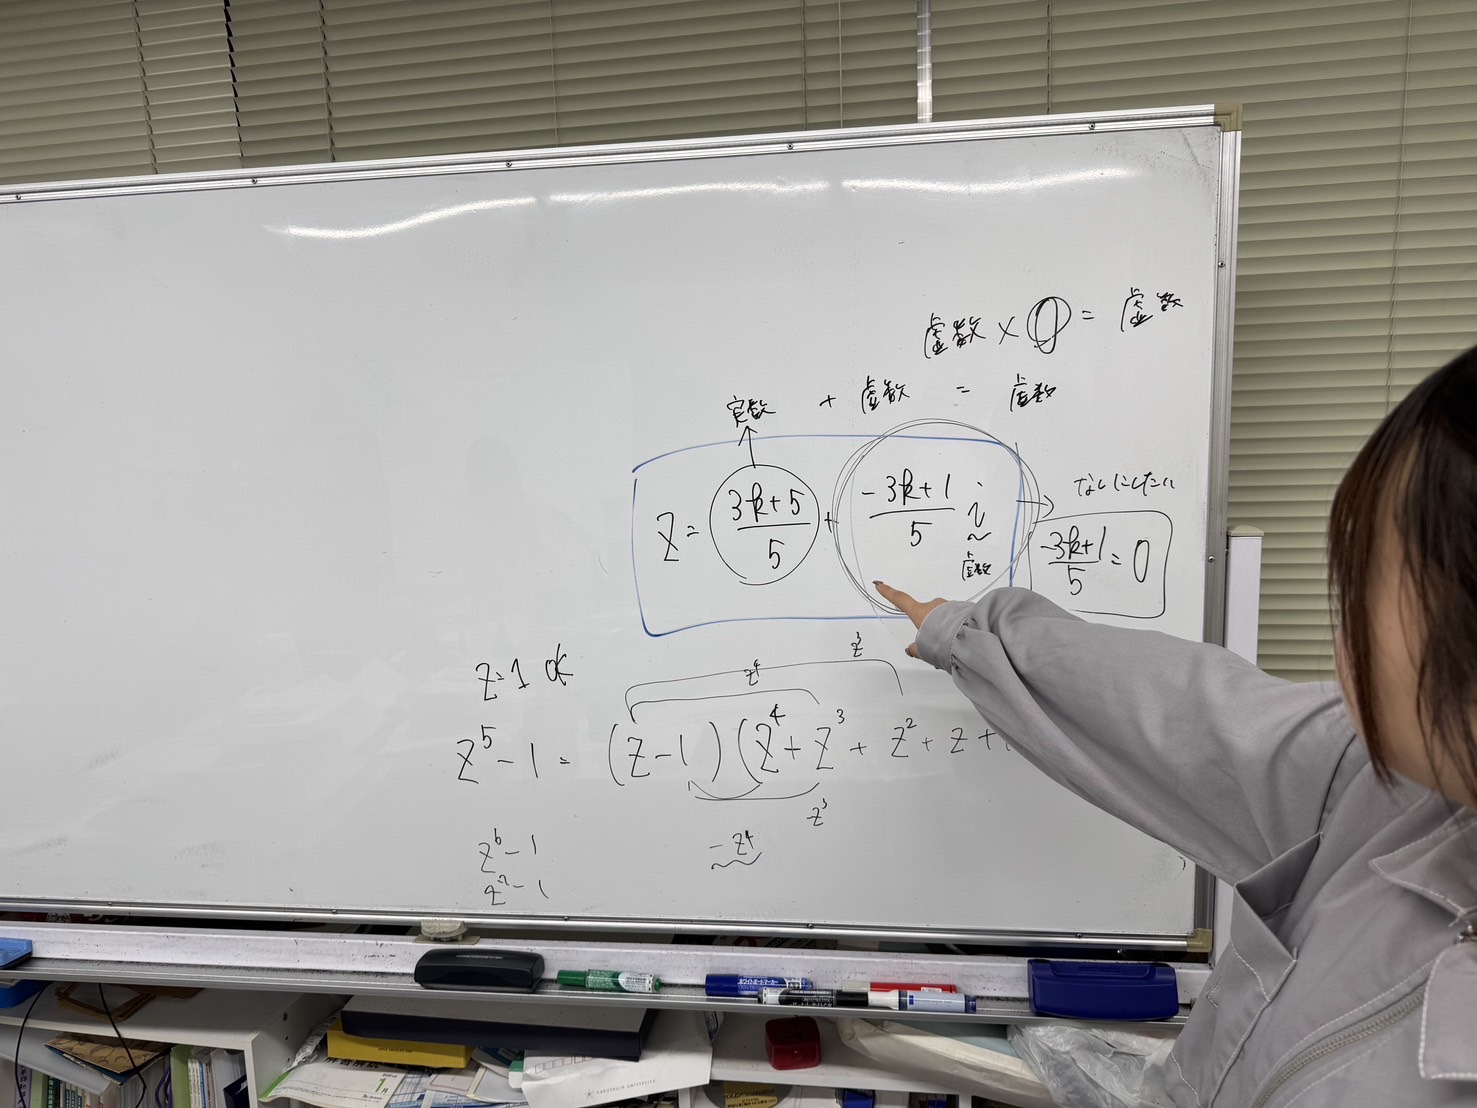 虚数 × 0 = 虚数
実数 + 虚数 = 虚数
なしにしたい
z = \frac{3k+5}{5} + \frac{-3k+1}{5} i
虚数
\frac{-3k+1}{5} = 0
z=1 ok
z^3
z^4
z^5 - 1 = (z-1)(z^4 + z^3 + z^2 + z +
z^3
-z^4
z^6 - 1
z^7 - 1